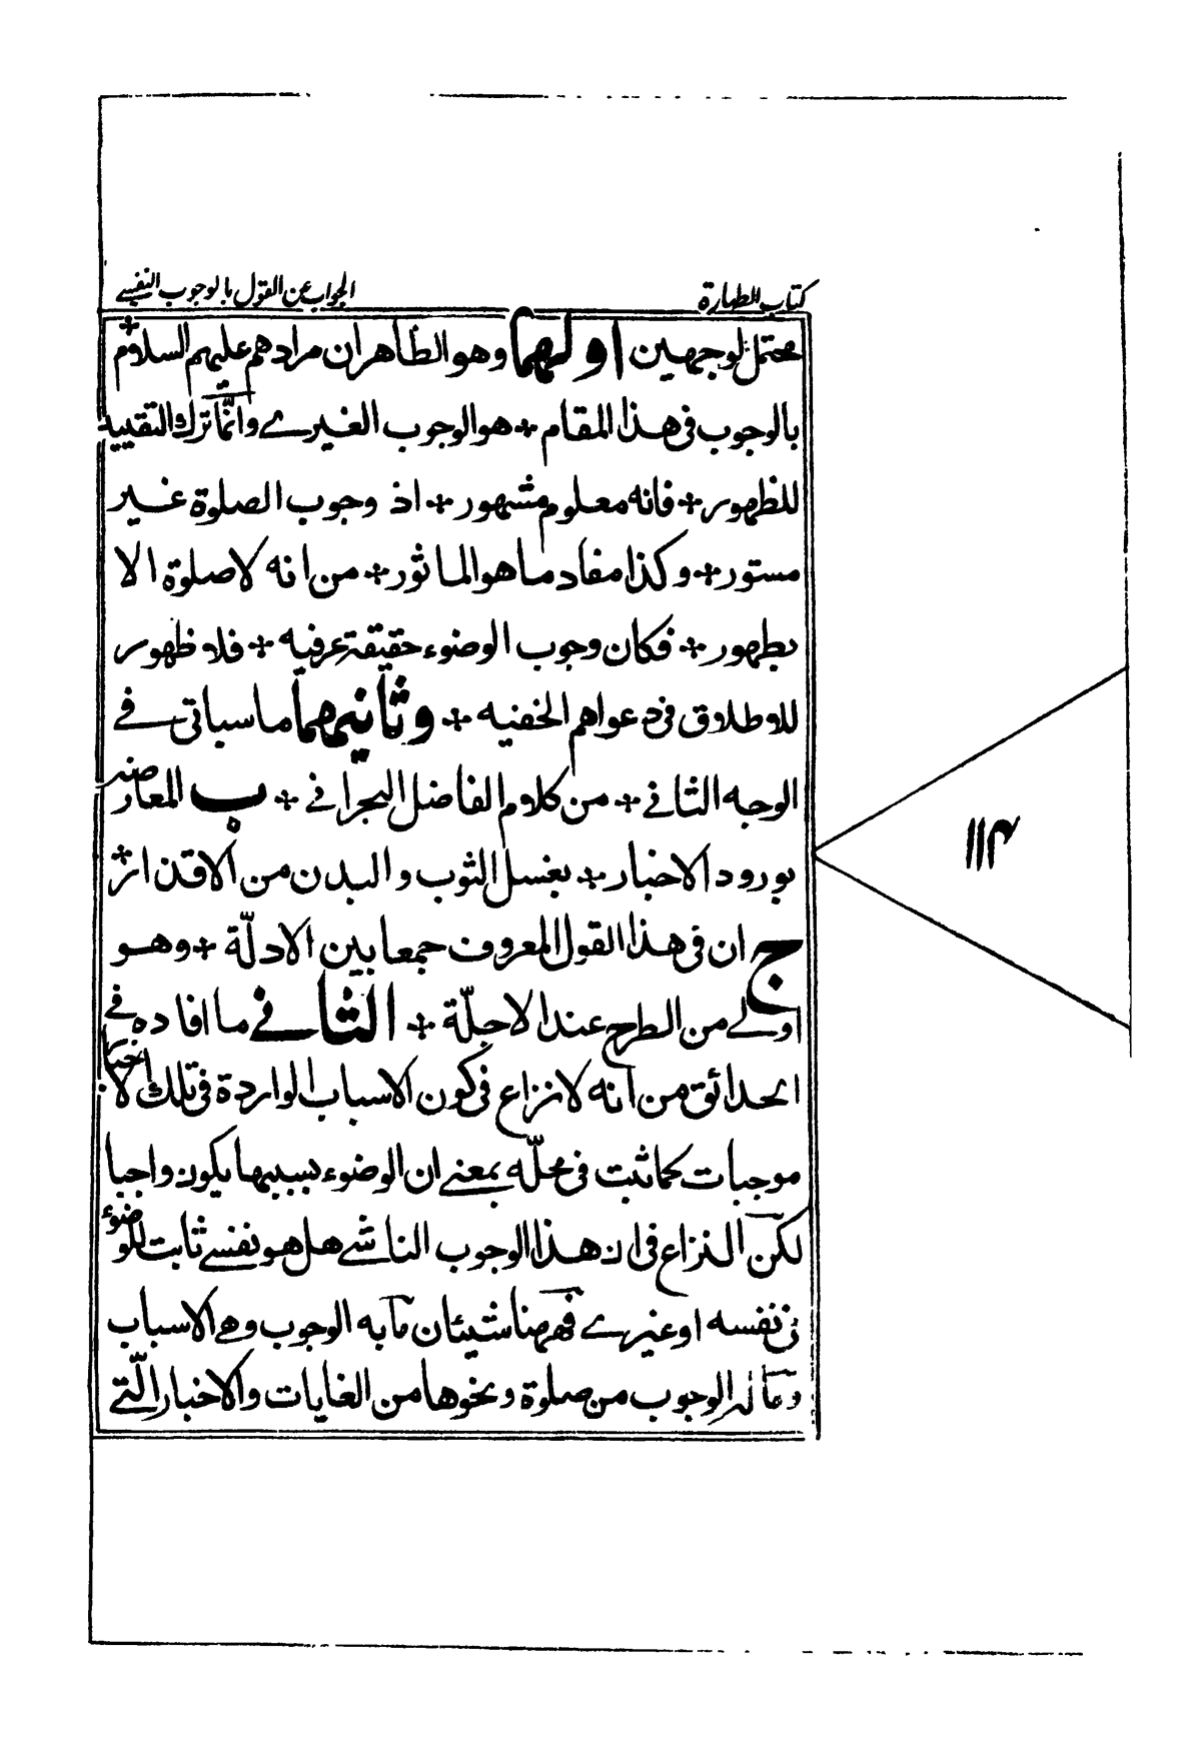 كتاب الطهارة
الجواب عن القول بالوجوب النفسي
محتمل لوجهين اولهما وهو الظاهر ان مرادهم عليهم السلام +
بالوجوب في هذا المقام + هو الوجوب الغيرے وانّما ترك التقييد
للظهور + فانه معلوم مشهور + اذ وجوب الصلوة غير
مستور + وكذا مفاد ما هو الماثور + من انه لا صلوة الا
بطهور + فكان وجوب الوضوء حقيقة عرفيه + فلا ظهور
للاطلاق في دعواهم الخفيه + وثانيهما ما سياتي في
الوجه الثاني + من كلام الفاضل البحراني + ب المعارضه
بورود الاخبار + بغسل الثوب والبدن من الاقذار +
ج ان في هذا القول المعروف جمعا بين الادلّة + وهو
اولے من الطرح عند الاجلّة + الثاني ما افاده في
الحدائق من انه لا نزاع في كون الاسباب الواردة في تلك الاخبار
موجبات كما ثبت في محلّه بمعنے ان الوضوء بسببها يكون واجبا
لكن النزاع في ان هذا الوجوب الناشے هل هو نفسے ثابت للوضوء
في نفسه او غيرے فههنا شيئان ما به الوجوب وهے الاسباب
وما له الوجوب من صلوة ونحوها من الغايات والاخبار الّتے
١١٤